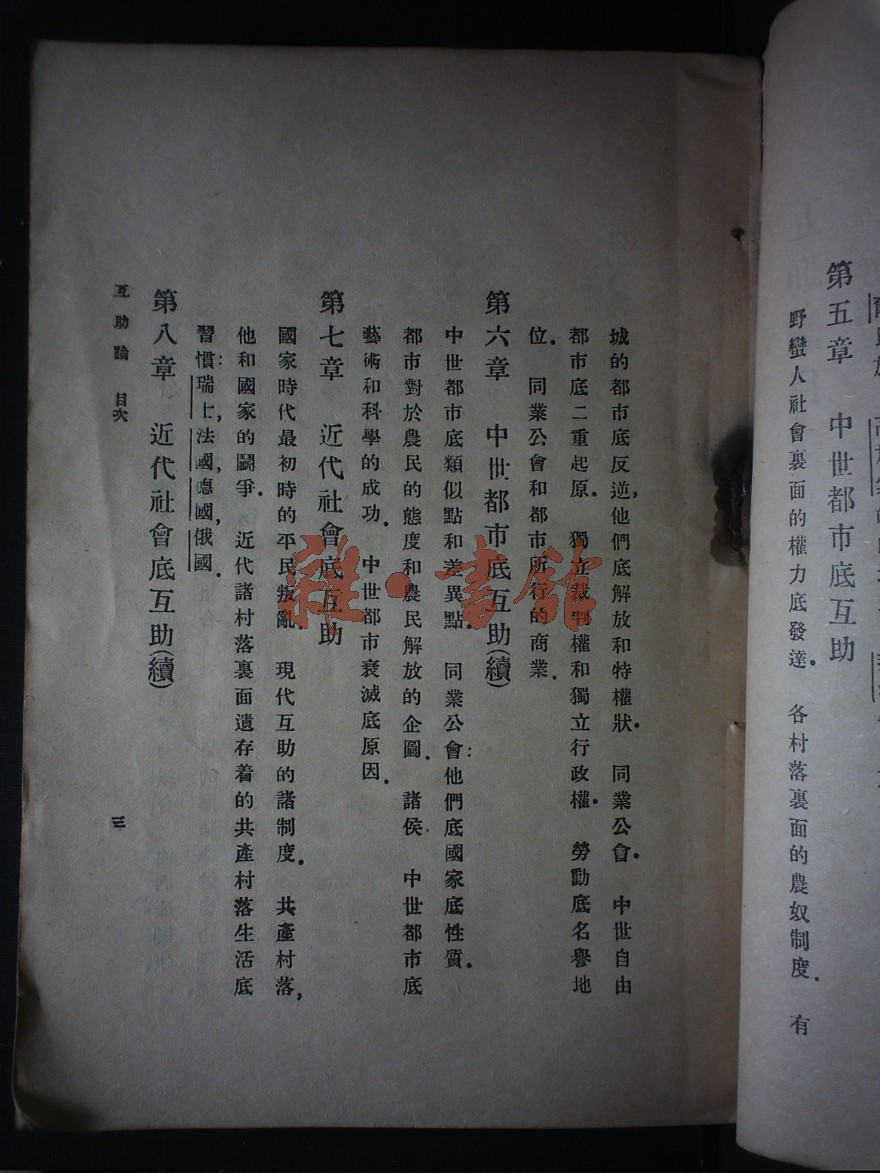 第五章　中世都市底互助
野蠻人社會裏面的權力底發達．　各村落裏面的農奴制度．　有
城的都市底反逆,他們底解放和特權狀．　同業公會．　中世自由
都市底二重起原．　獨立裁判權和獨立行政權．　勞動底名譽地
位．　同業公會和都市所行的商業．
第六章　中世都市底互助(續)
中世都市底類似點和差異點．　同業公會:他們底國家底性質．
都市對於農民的態度和農民解放的企圖．　諸侯．　中世都市底
藝術和科學的成功．　中世都市衰滅底原因．
第七章　近代社會底互助
國家時代最初時的平民叛亂．　現代互助的諸制度．　共產村落,
他和國家的鬭爭．　近代諸村落裏面遺存着的共產村落生活底
習慣:瑞士,法國,德國,俄國．
第八章　近代社會底互助(續)
互助論　目次
三
雜·書館